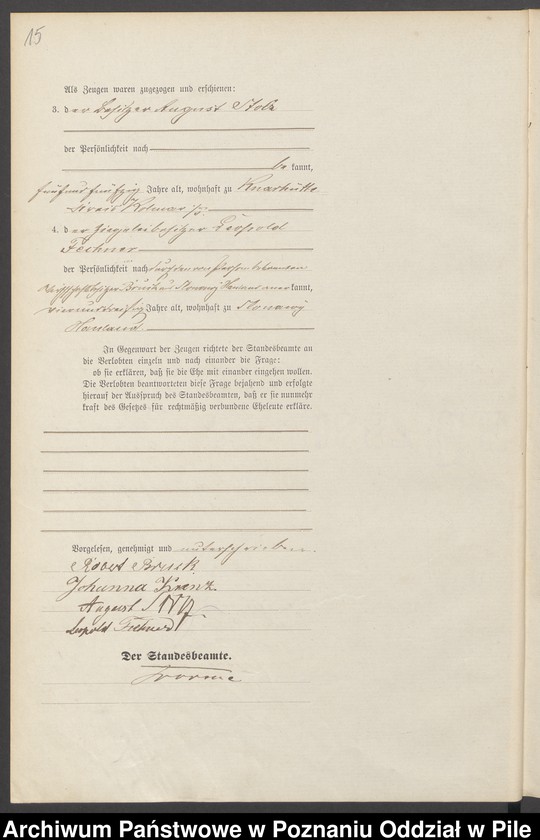 15
Als Zeugen waren zugezogen und erschienen:
3. der Besitzer August Stolz
der Persönlichkeit nach
bekannt,
fünfundfünfzig Jahre alt, wohnhaft zu
Kreis Kolmar i/P.
4. der Ziegeleibesitzer Leopold
Fechner
der Persönlichkeit nach durch den
kannt,
vierunddreißig Jahre alt, wohnhaft zu
Hauland
In Gegenwart der Zeugen richtete der Standesbeamte an
die Verlobten einzeln und nach einander die Frage:
ob sie erklären, daß sie die Ehe mit einander eingehen wollen.
Die Verlobten beantworteten diese Frage bejahend und erfolgte
hierauf der Ausspruch des Standesbeamten, daß er sie nunmehr
kraft des Gesetzes für rechtmäßig verbundene Eheleute erkläre.
Vorgelesen, genehmigt und unterschrieben.
Johanna
August Stolz
Leopold Fechner
Der Standesbeamte.
Archiwum Państwowe w Poznaniu Oddział w Pile